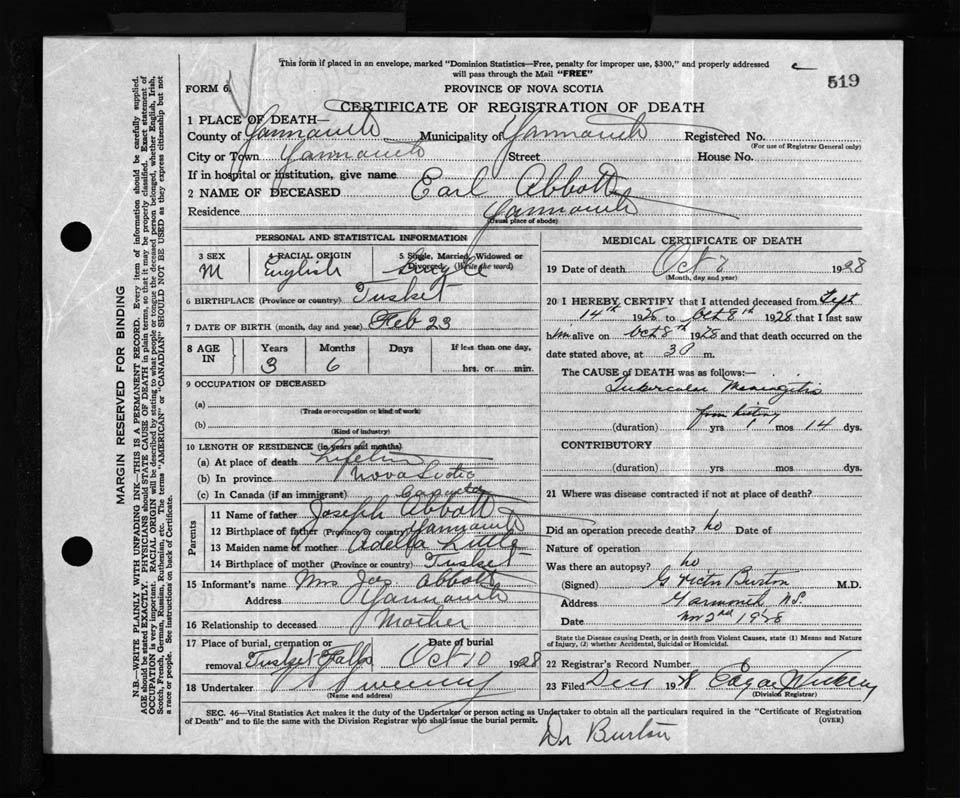 This form if placed in an envelope, marked "Dominion Statistics—Free, penalty for improper use, $300," and properly addressed
will pass through the Mail "FREE"
519
FORM 6 PROVINCE OF NOVA SCOTIA
CERTIFICATE OF REGISTRATION OF DEATH
1 PLACE OF DEATH—
County of Yarmouth Municipality of Yarmouth Registered No.
(For use of Registrar General only)
City or Town Yarmouth Street House No.
If in hospital or institution, give name
2 NAME OF DECEASED Earl Abbott
Residence Yarmouth
(Usual place of abode)
PERSONAL AND STATISTICAL INFORMATION
3 SEX 4 RACIAL ORIGIN 5 Single, Married, Widowed or Divorced (Write the word)
M English Single
6 BIRTHPLACE (Province or country) Tusket
7 DATE OF BIRTH (month, day and year) Feb 23
8 AGE IN Years Months Days If less than one day,
3 6 hrs. or min.
9 OCCUPATION OF DECEASED
(a)
(Trade or occupation or kind of work)
(b)
(Kind of industry)
10 LENGTH OF RESIDENCE (in years and months)
(a) At place of death
(b) In province Nova Scotia
(c) In Canada (if an immigrant) Canada
Parents
11 Name of father Joseph Abbott
12 Birthplace of father (Province or country) Yarmouth
13 Maiden name of mother Adella
14 Birthplace of mother (Province or country) Tusket
15 Informant's name Mrs Jos Abbott
Address Yarmouth
16 Relationship to deceased Mother
17 Place of burial, cremation or Date of burial
removal Tusket Falls Oct 10 1928
18 Undertaker Sweeny
(Name and address)
MEDICAL CERTIFICATE OF DEATH
19 Date of death Oct 1928
(Month, day and year)
20 I HEREBY CERTIFY that I attended deceased from Sept
14th 1928 to Oct 8th 1928 that I last saw
him alive on Oct 8th 1928 and that death occurred on the
date stated above, at m.
The CAUSE OF DEATH was as follows:—
Tubercular Meningitis
from history
(duration) yrs mos 14 dys.
CONTRIBUTORY
(duration) yrs mos dys.
21 Where was disease contracted if not at place of death?
Did an operation precede death? no Date of
Nature of operation
Was there an autopsy? no
(Signed) G Victor Burton M.D.
Address Yarmouth N.S.
Date Nov 2nd 1928
State the Disease causing Death, or in death from Violent Causes, state (1) Means and Nature
of Injury, (2) whether Accidental, Suicidal or Homicidal.
22 Registrar's Record Number
23 Filed Dec 1928 Edgar
(Division Registrar)
SEC. 46—Vital Statistics Act makes it the duty of the Undertaker or person acting as Undertaker to obtain all the particulars required in the "Certificate of Registration
of Death" and to file the same with the Division Registrar who shall issue the burial permit. (OVER)
Dr Burton
MARGIN RESERVED FOR BINDING
N.B.—WRITE PLAINLY WITH UNFADING INK—THIS IS A PERMANENT RECORD. Every item of information should be carefully supplied.
AGE should be stated EXACTLY. PHYSICIANS should STATE CAUSE OF DEATH in plain terms, so that it may be properly classified. Exact statement of
OCCUPATION is very important. RACIAL ORIGIN will be described by stating to what people or tongue the deceased person belonged, whether English, Irish,
Scotch, French, German, Russian, Ruthenian, etc. The terms "AMERICAN" or "CANADIAN" SHOULD NOT BE USED as they express citizenship but not
a race or people. See instructions on back of Certificate.